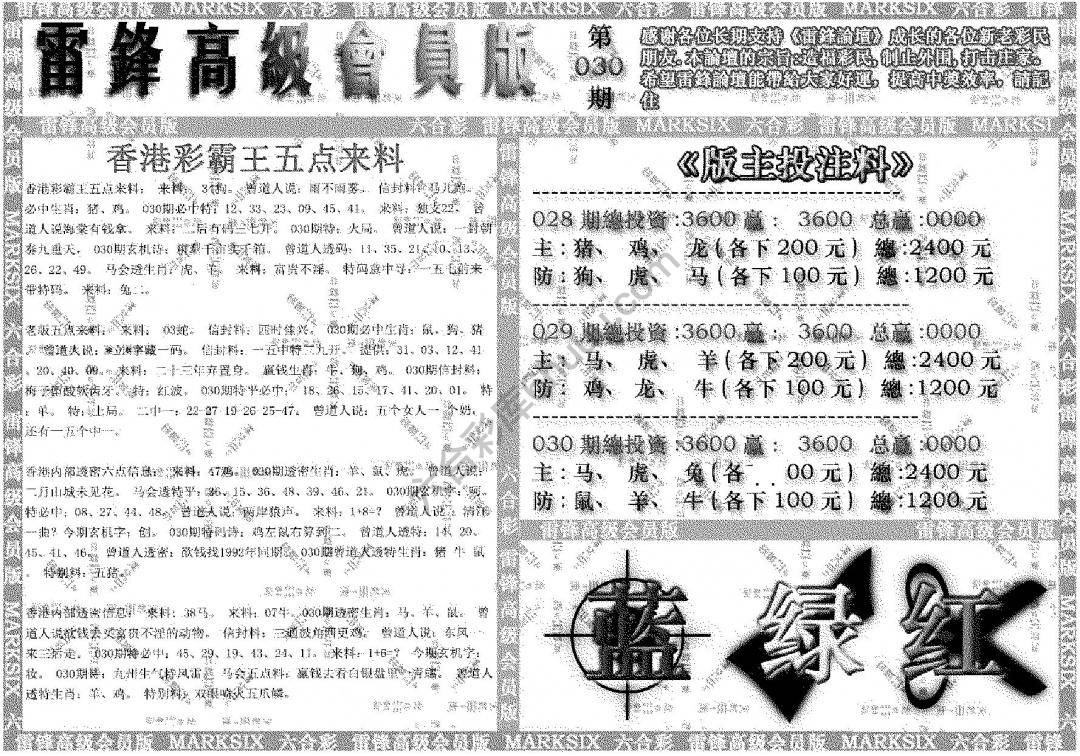 雷鋒高級會員版
第
030
期
感謝各位长期支持《雷鋒論壇》成长的各位新老彩民
朋友.本論壇的宗旨:造福彩民,制止外围,打击庄家。
希望雷鋒論壇能帶給大家好運，提高中獎效率，請記
住
雷锋高级会员版 MARKSIX 六合彩
香港彩霸王五点来料
香港彩霸王五点来料： 来料：31狗。 曾道人说：雨不雨雾。 信封料：马儿跑。
必中生肖：猪、鸡。 030期必中特：12、33、23、09、45、41。 来料：独支22。 曾
道人说海棠有钱拿。 来料：二后有码三七开。 030期特：火局。 曾道人说：一封朝
奏九重天。 030期玄机诗： 曾道人透码：11、35、21、10、13、
26、22、49。 马会透生肖：虎、羊。 来料：富贵不淫。 特码意中寻：一五七前来
带特码。 来料：兔二。
老版五点来料： 来料： 03蛇。 信封料：四时佳兴。 030期必中生肖：鼠、狗、猪
。 曾道人说： 藏一码。 信封料：一五中特三九开。 提供：31、03、12、41
、20、40、09。 来料：二十三年弃置身。 赢钱生肖：牛、狗、鸡。 030期信封料：
梅子留酸软齿牙。 特：红波。 030期特平必中：18、26、15、17、41、20、01。 特
：单。 特：土局。 二中一：22-27 19-26 25-47。 曾道人说：五个女人一个奶，
还有一五个中一。
香港内部透密六点信息： 来料：47鸡。 030期透密生肖：羊、鼠、虎。 曾道人说：
二月山城未见花。 马会透特平：36、15、36、48、39、46、21。 030期玄机字：
特必中：08、27、44、48。 曾道人说：两岸猿声。 来料：1+8=？ 曾道人说：清江
一曲？今期玄机字：创。 030期特码诗：鸡左鼠右算到二。 曾道人透特：14、20、
45、41、46。 曾道人透密：欲钱找1992年同期。 030期曾道人透特生肖：猪 牛 鼠
。 特别料：五猪。
香港内部透密信息： 来料：38马。 来料：07牛。 030期透密生肖：马、羊、鼠。 曾
道人说欲钱去买富贵不淫的动物。 信封料：三通波角四更鸡。 曾道人说：东风一
来三后走。 030期特必中：45、29、19、43、24、11。 来料：1+6=？ 今期玄机字：
妆。 030期诗：九州生气恃风雷。 马会五点料：赢钱去看白银盘里一青螺。 曾道人
透特生肖：羊、鸡。 特别料：双眼喷火五爪鳞。
《版主投注料》
028 期總投资:3600 赢： 3600 总赢:0000
主:猪、鸡、龙(各下200元) 總:2400元
防:狗、虎、马(各下100元) 總:1200元
029 期總投资:3600 赢： 3600 总赢:0000
主:马、虎、羊(各下200元) 總:2400元
防:鸡、龙、牛(各下100元) 總:1200元
030 期總投资:3600 赢： 3600 总赢:0000
主:马、虎、兔(各 00元) 總:2400元
防:鼠、羊、牛(各下100元) 總:1200元
雷锋高级会员版 MARKSIX 六合彩
藍 绿 红
雷锋高级会员版 MARKSIX 六合彩 雷锋高级会员版 MARKSIX 六合彩 雷锋高级会员版